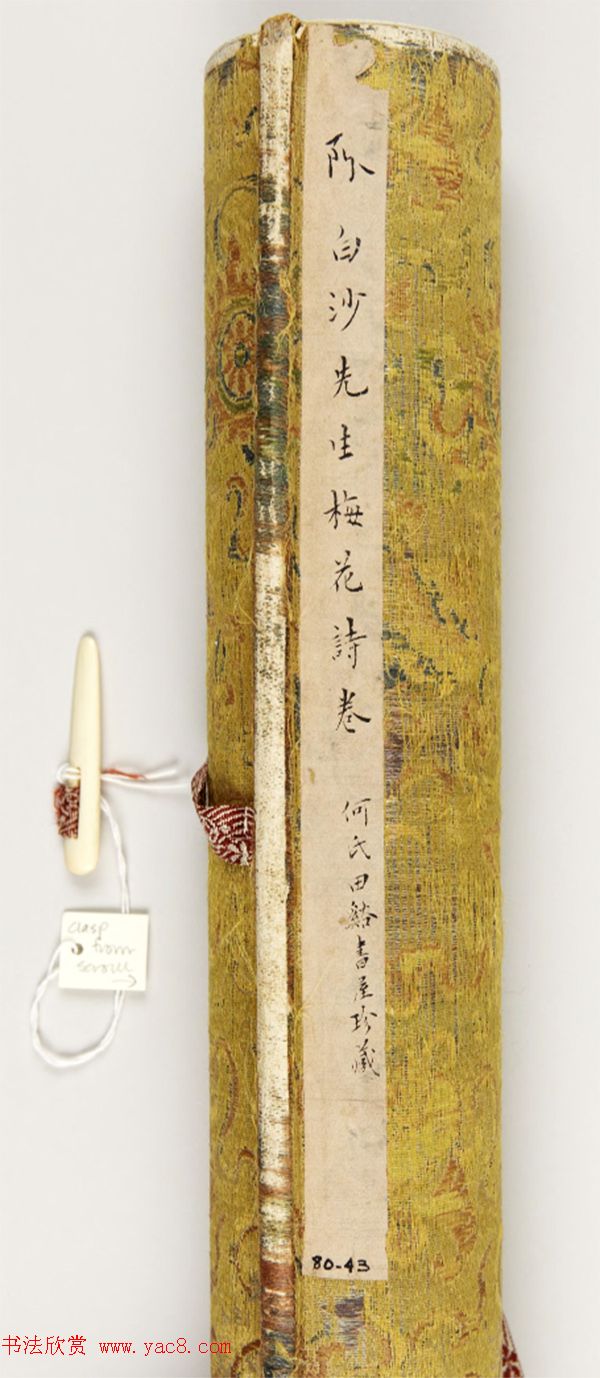 陈白沙先生梅花詩卷
何氏田谿書屋珍藏
80-43
clasp
from
scroll
→
书法欣赏 www.yac8.com